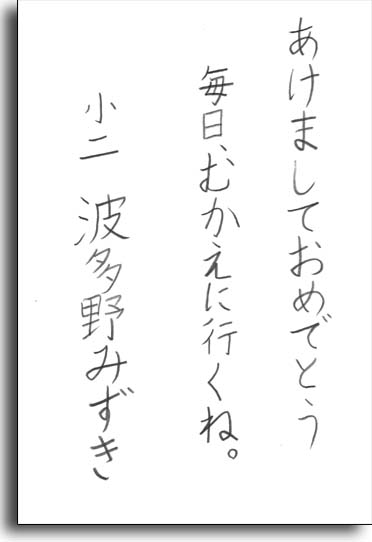 あけましておめでとう
毎日、むかえに行くね。
小二 波多野みずき